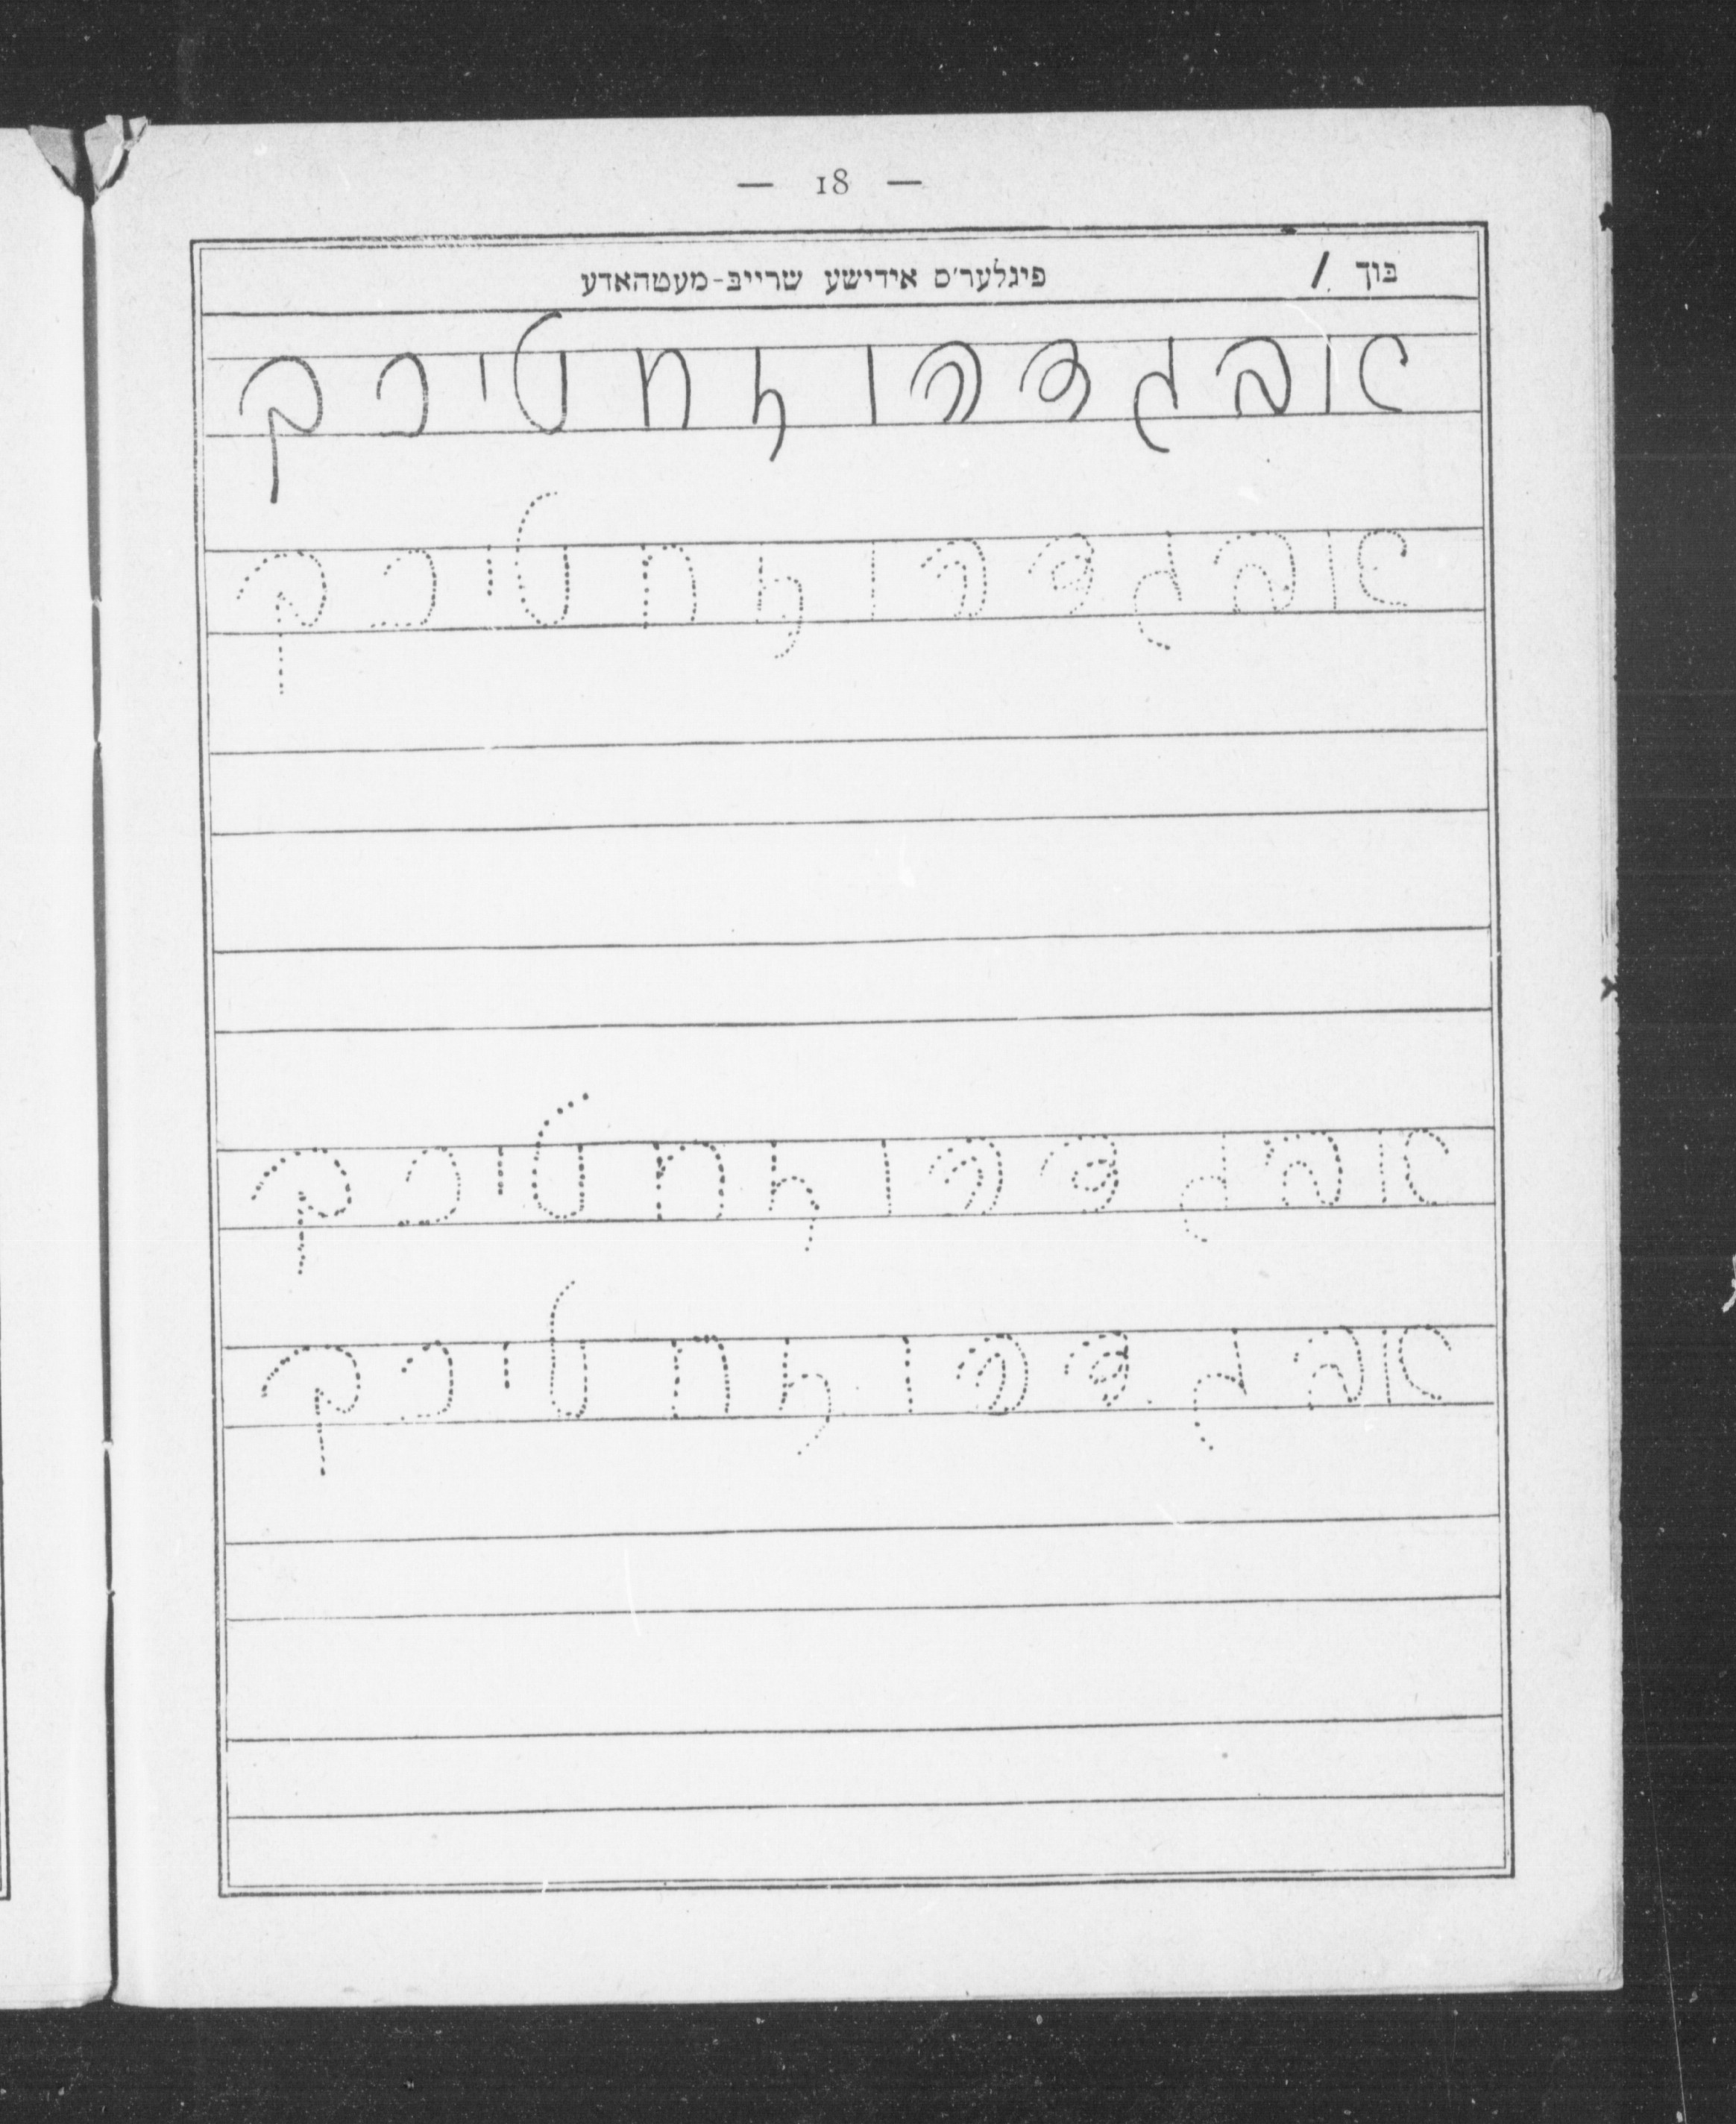 — 18 —
בוך 1 פיגלער׳ס אידישע שרייב-מעטהאדע
א ב ג ד ה ו ז ח ט י כ ך
א ב ג ד ה ו ז ח ט י כ ך
א ב ג ד ה ו ז ח ט י כ ך
א ב ג ד ה ו ז ח ט י כ ך